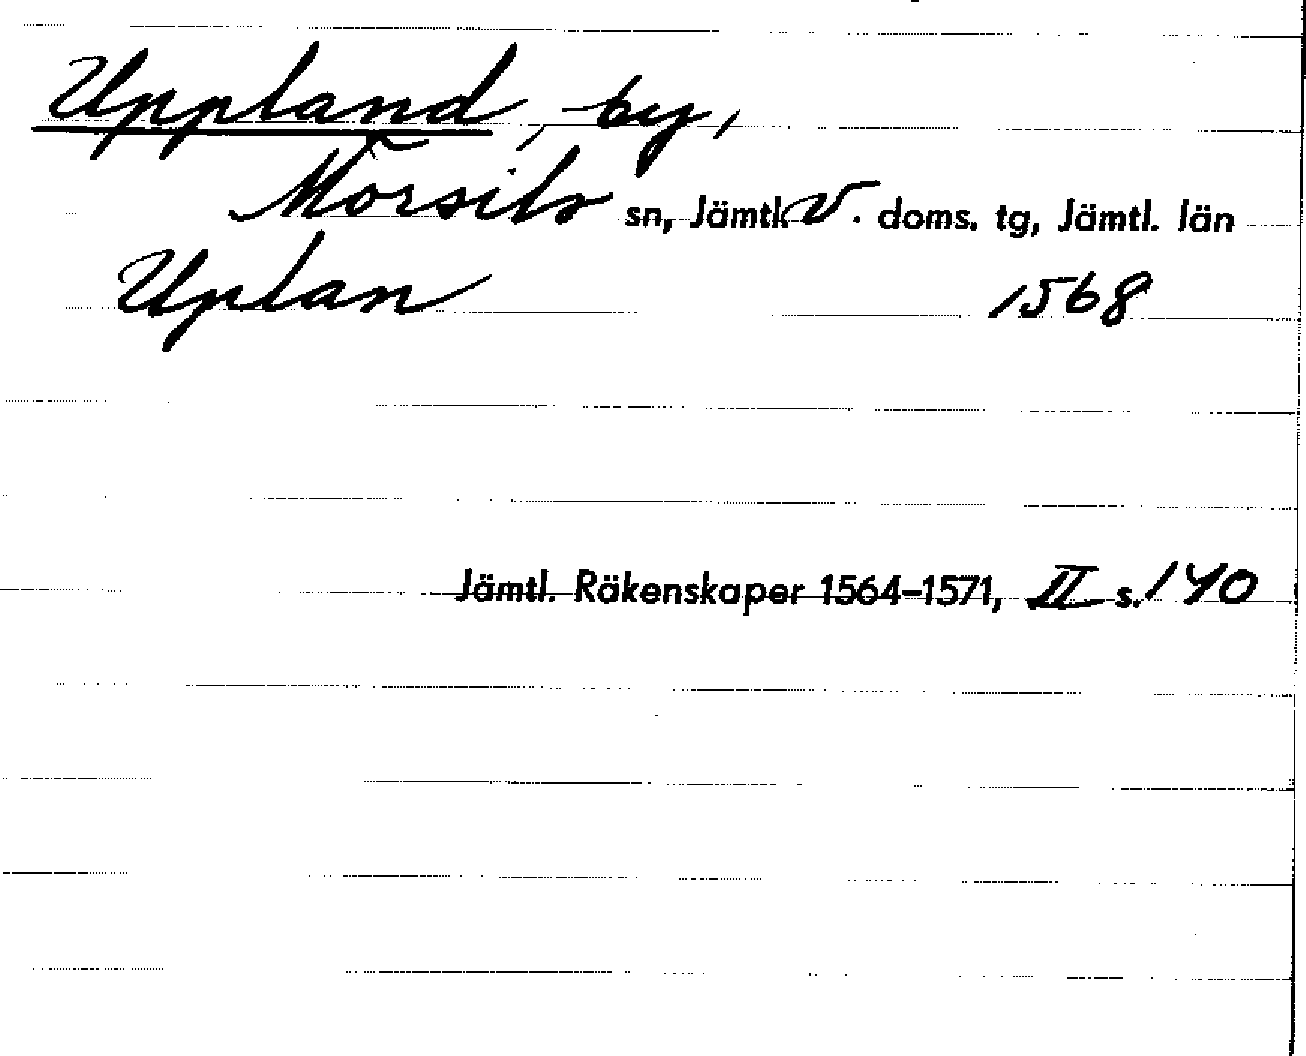 Uppland, by,
Mörsils sn, Jämtl. V. doms. tg, Jämtl. län
Uplan 1568
Jämtl. Räkenskaper 1564–1571, II s. 140